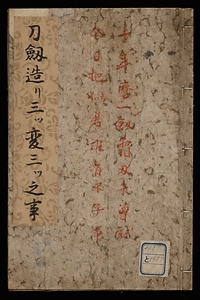 刀劔造リ三ッ変三ッ之事
十年磨一劔霜刃未曽試
今日把似君誰有不平事